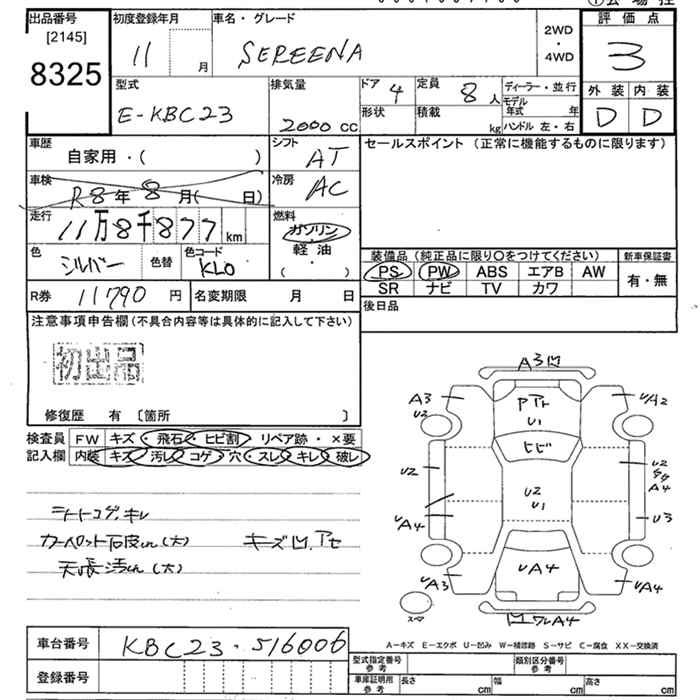 出品番号 初度登録年月 車名・グレード 2WD ・ 4WD 評価点
[2145]
8325 11 月 SEREENA 3
型式 排気量 ドア 4 定員 8人 ディーラー・並行 外装 内装
E-KBC23 2000 cc 形状 積載 kg モデル年式 年 D D
ハンドル 左・右
車歴 シフト セールスポイント (正常に機能するものに限ります)
自家用・( ) AT
車検 冷房
R8年8月( 日) AC
走行 燃料
11万8千877km ガソリン
色 色替 色コード 軽油
シルバー KL0 ( ・ )
装備品 (純正品に限り○をつけてください) 新車保証書
PS PW ABS エアB AW 有・無
SR ナビ TV カワ
R券 11790 円 名変期限 月 日 後日品
注意事項申告欄 (不具合内容等は具体的に記入して下さい)
初出品
修復歴 有 〔箇所 〕
検査員 FW キズ・飛石・ヒビ割 リペア跡・×要
記入欄 内装 キズ 汚レ コゲ 穴・スレ キレ 破レ
シートコゲ、キレ
カーペット
A3凹
A3 UA2
U2 アト
U1
ヒビ
U2 U2
A4
U2
U1 U3
UA4
UA4
UA3 UA4
スペア 凹ワレA4
A-キズ E-エクボ U-凹み W-補修跡 S-サビ C-腐食 XX-交換済
車台番号 KBC23-516006
登録番号
型式指定番号 参考 類別区分番号 参考
車庫証明用 参考 長さ cm 幅 cm 高さ cm